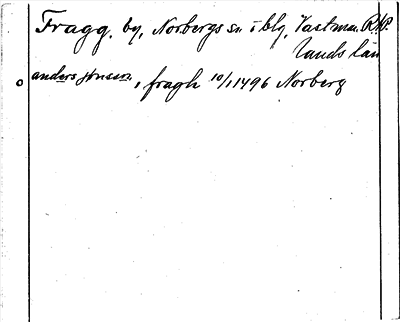 Fragg, by, Norbergs sn i blq, Västman R.A.P.
lands län
anders jönsen, i fragh 10/1 1496 Norberg